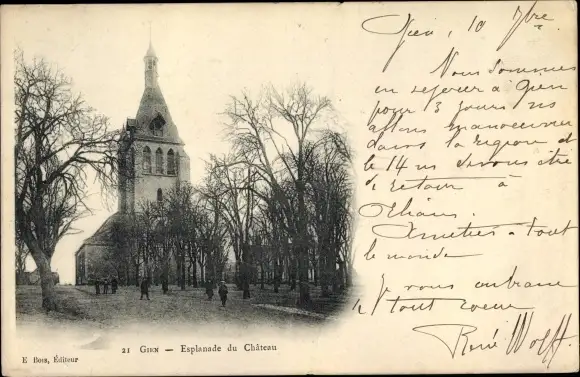 Gien, 10 7bre
Nous sommes
en séjour à Gien
pour 3 jours ns
allons manoeuvrer
dans la région de
le 14 ns devons être
de retour à
Orléans.
Amitiés à tout
le monde
Je vous embrasse
de tout coeur
René Wolff
21 GIEN — Esplanade du Château
E Bois, Éditeur